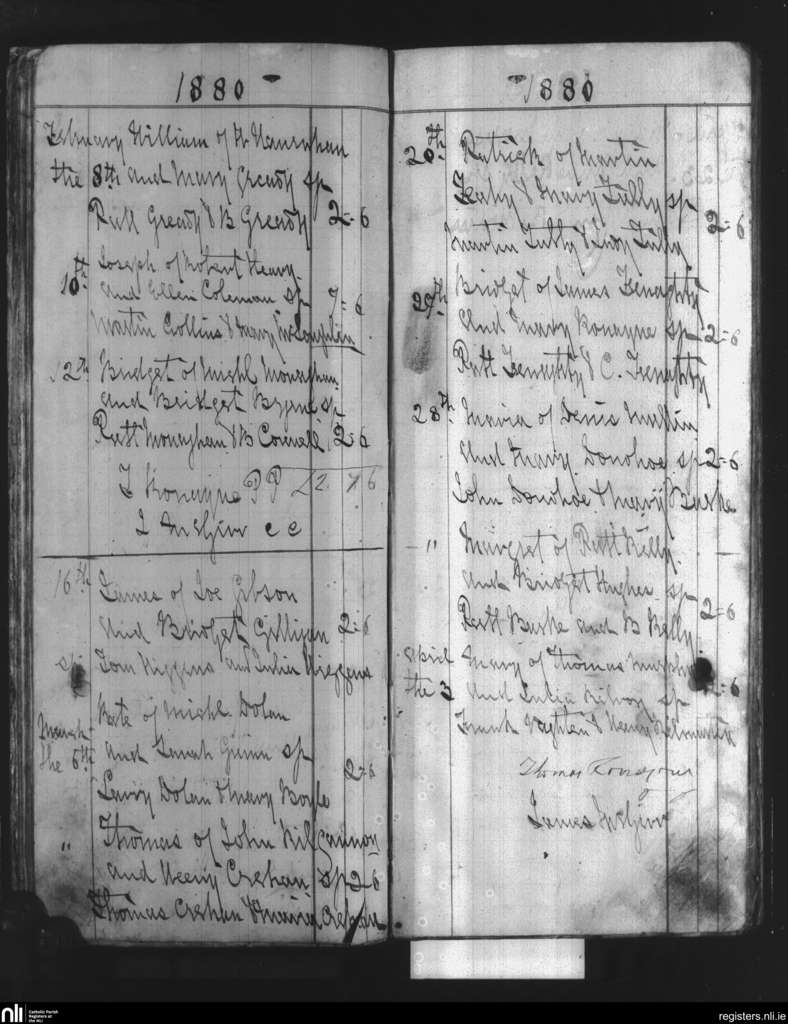 1880
February William of W Hanrahan
the 8th and Mary Gready sp
Patt Gready & B Gready 2=6
10th Joseph of Robert Heavy
and Ellen Coleman sp 7=6
Martin Collins & Mary McLoughlin
12th Bridget of Michl Monaghan
and Bridget Byrne sp
Patt Monaghan & B Connell 2=6
T Ronayne PP £2 7 6
J McGirr CC
16th James of Joe Gibson
And Bridget Gilligan 2=6
sp Tom Higgens and Julia Higgens
Kate of Michl Dolan
March the 6th and Sarah Quinn sp
2=6
Larry Dolan & Mary Boyle
" Thomas of John Kilgannon
and Weeny Crehan sp 2=6
Thomas Crehan & Maria Crehan
1880
20th Patrick of Martin
Leahy & Mary Tully sp
2=6
Martin Tully & Tully
29th Bridget of James Fenaghty
And Mary Ronayne sp 2=6
Patt Fenaghty & C. Fenaghty
28th Maria of Denis Mullin
And Mary Donohoe sp 2=6
John Donohoe & Mary Burke
" Margret of Patt Kelly
and Bridget Hughes sp
2=6
Patt Burke and B Kelly
April Mary of Thomas Murphy
the 3 And Julia Kilroy sp 2=6
Frank Naghten & Mary
Thomas Ronayne
James McGirr
nli
Catholic Parish
Registers at
the NLI
registers.nli.ie